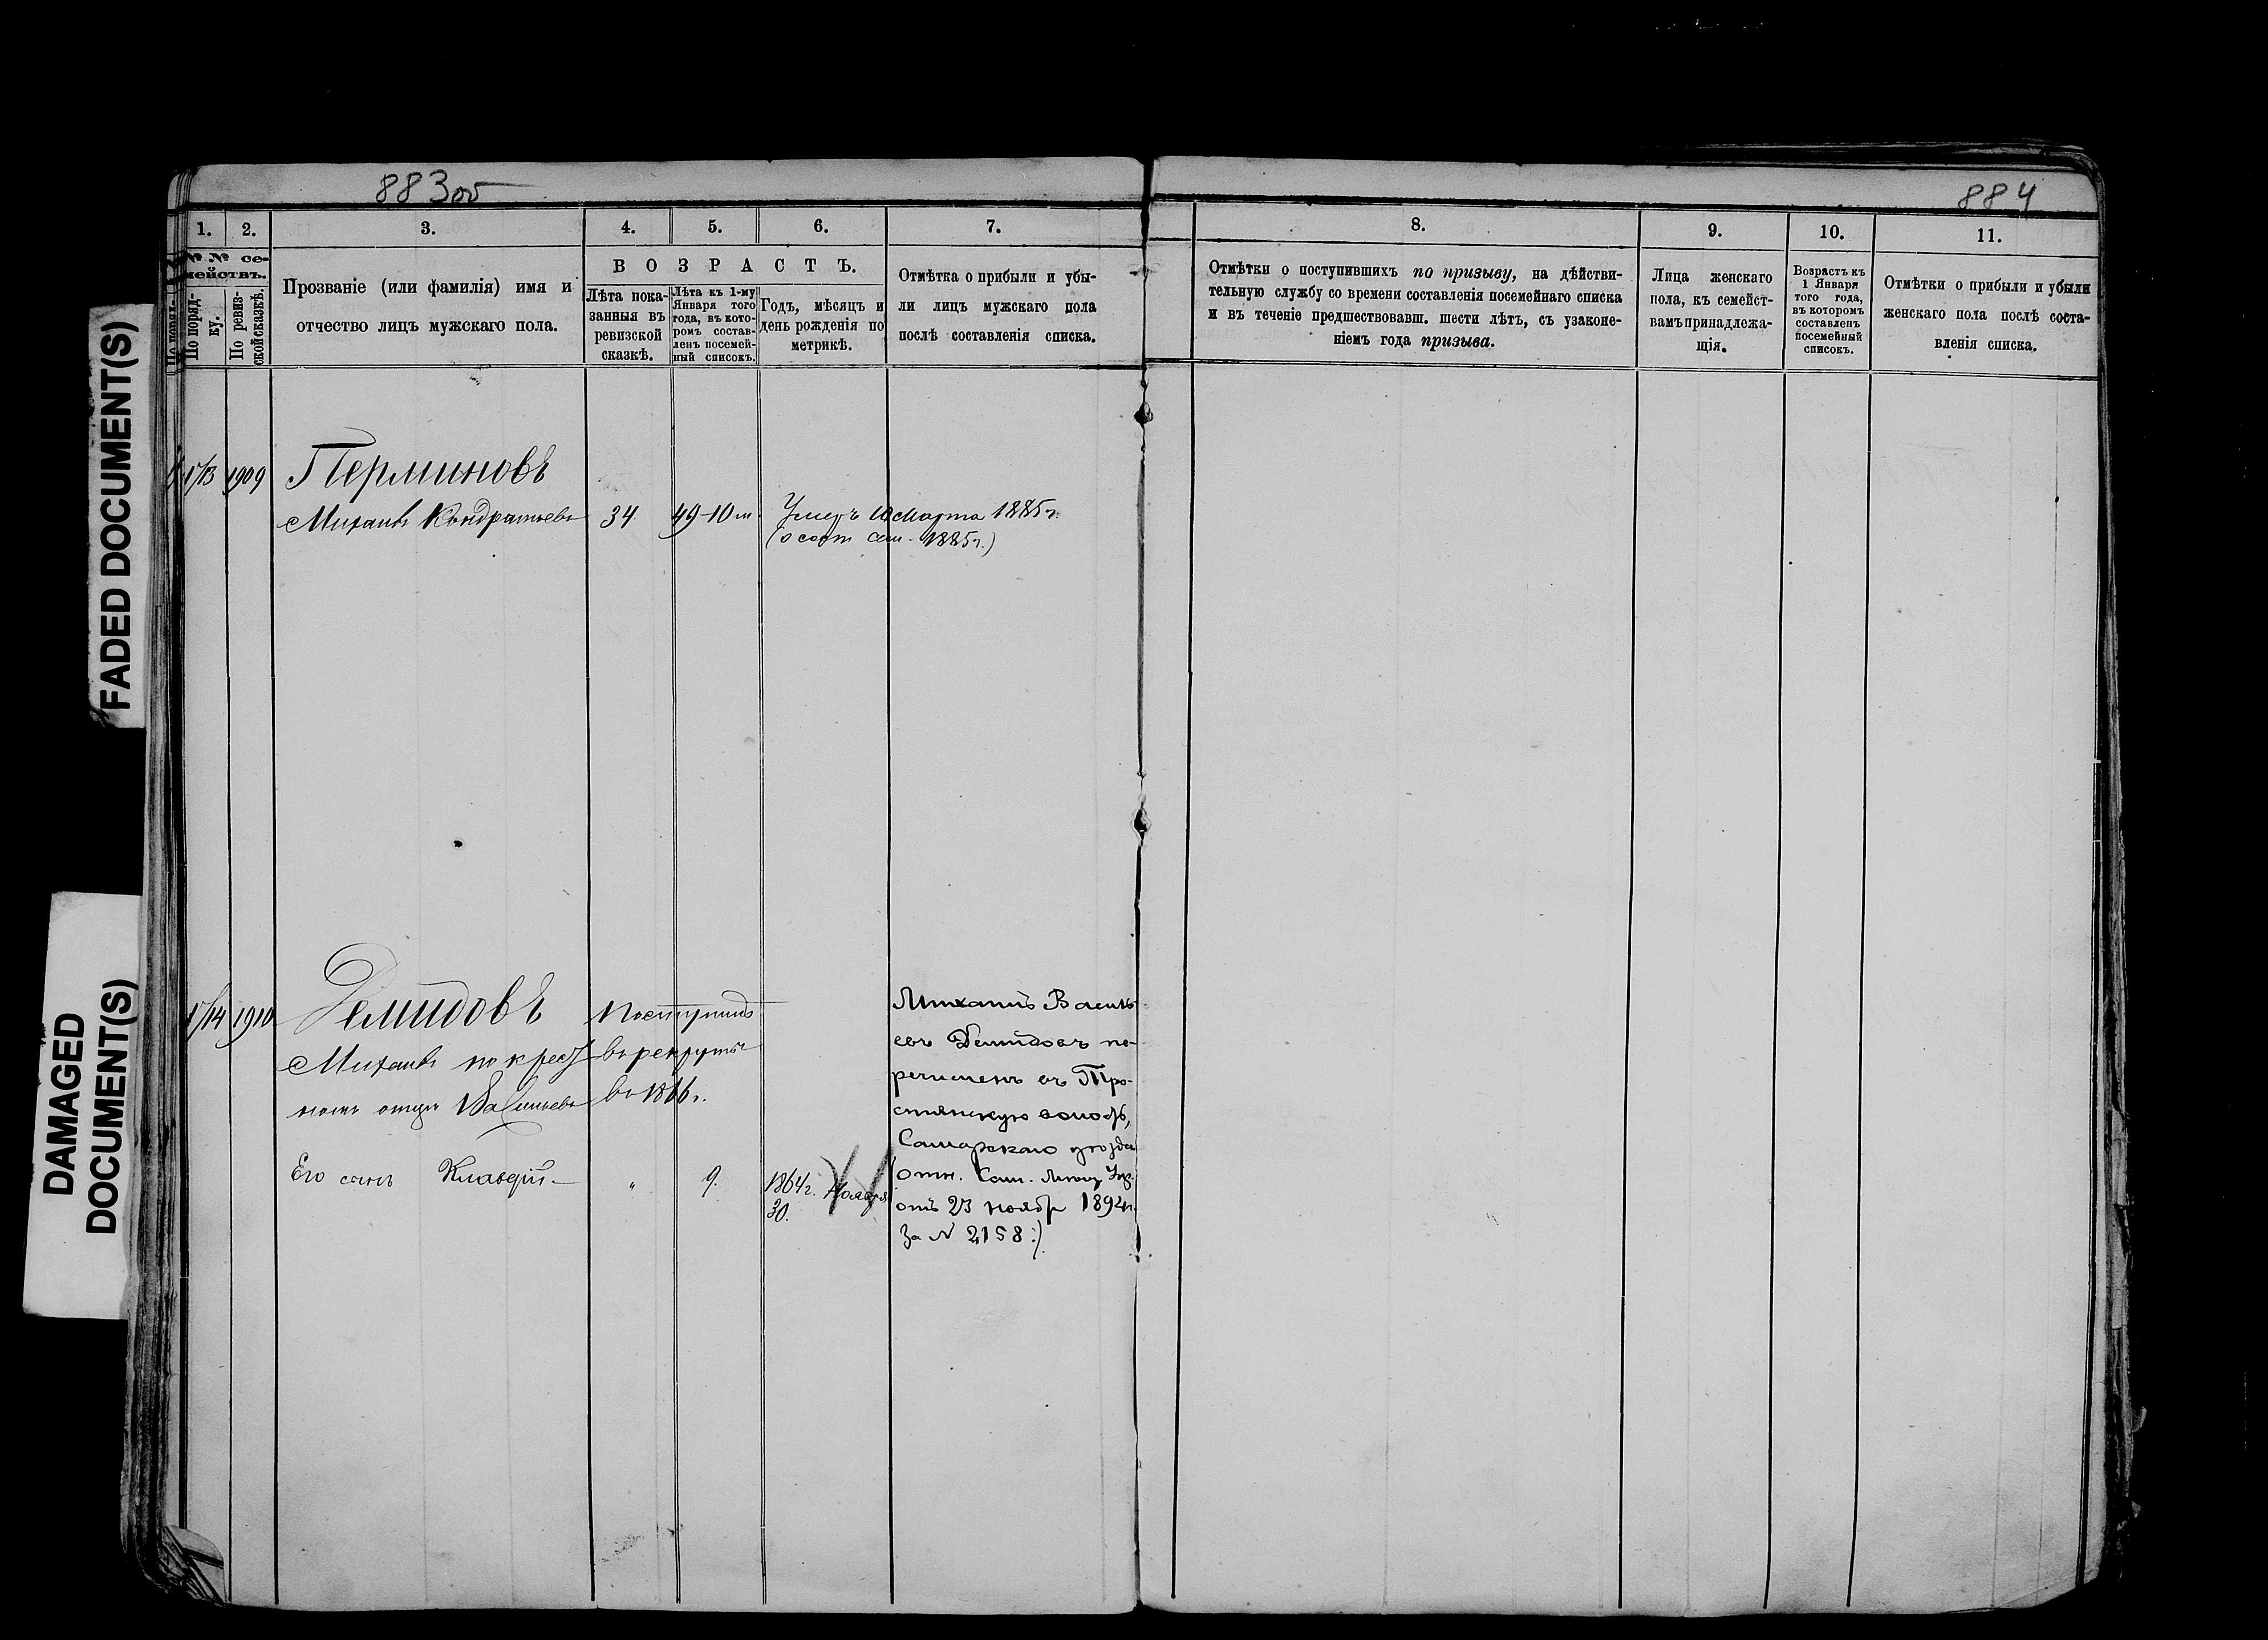 883об
884
1.
2.
3.
4.
5.
6.
7.
8.
9.
10.
11.
№ № се-
мействъ.
По поряд-
ку.
По ревиз-
ской сказкѣ.
Прозваніе (или фамилія) имя и
отчество лицъ мужскаго пола.
ВОЗРАСТЪ.
Лѣта пока-
занныя въ
ревизской
сказкѣ.
Лѣта къ 1-му
Января того
года, въ кото-
ромъ состав-
ленъ посемей-
ный списокъ.
Годъ, мѣсяцъ и
день рожденія по
метрикѣ.
Отмѣтка о прибыли и убы-
ли лицъ мужскаго пола
послѣ составленія списка.
Отмѣтки о поступившихъ по призыву, на дѣйстви-
тельную службу со времени составленія посемейнаго списка
и въ теченіе предшествовавш. шести лѣтъ, съ узаконе-
ніемъ года призыва.
Лица женскаго
пола, къ семейст-
вамъ принадлежа-
щія.
Возрастъ къ
1 Января
того года,
въ которомъ
составленъ
посемейный
списокъ.
Отмѣтки о прибыли и убыли
женскаго пола послѣ соста-
вленія списка.
1909
Перминовъ
Михаилъ Кондратьевъ
34
49-10 м
Умеръ 10 Марта 1885 г.
1885 г.)
1910
Демидовъ
Михаилъ по крест
ному отцу Васильевъ
Поступилъ
въ рекруты
въ 1866 г.
Его сынъ Клавдій
"
9.
1864 г. Ноября
30.
Михаилъ Василь
евъ Демидовъ пе-
речисленъ въ
волость,
Самарскаго уѣзда
(отн. Сам.
отъ 23 ноябр 1894 г.
за № 2158:)
FADED DOCUMENT(S)
DAMAGED
DOCUMENT(S)